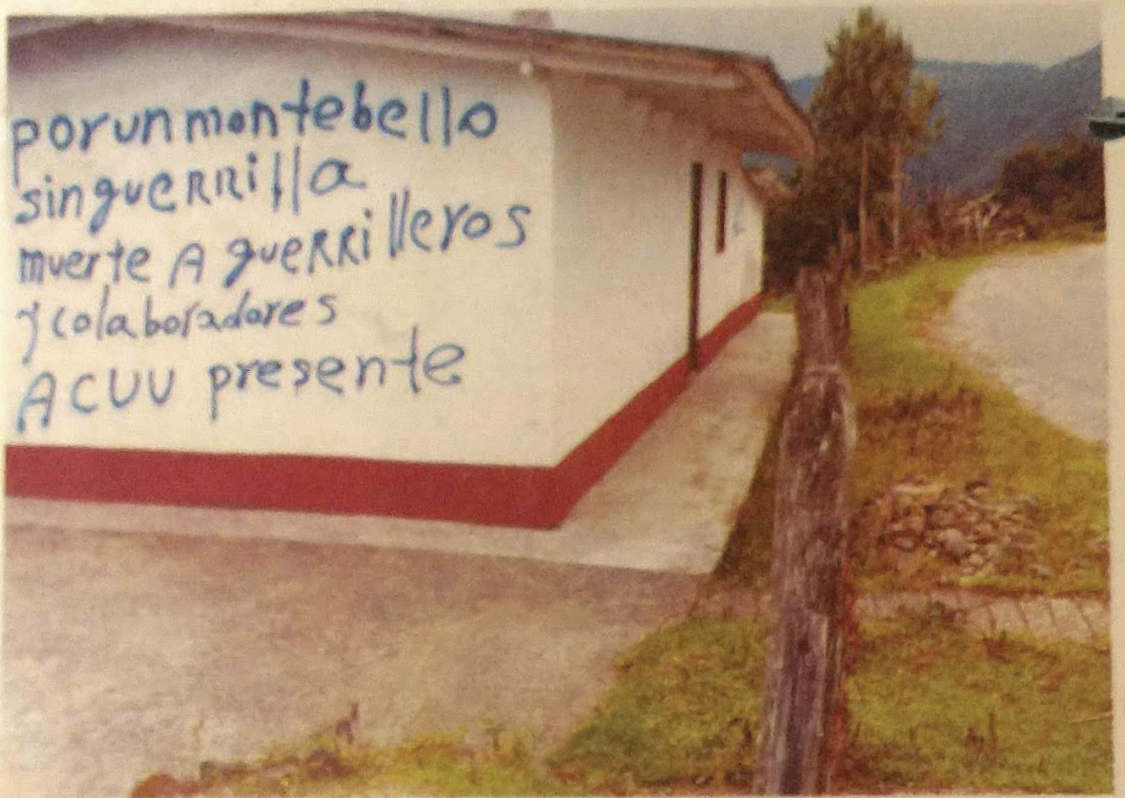 por un montebello
sin gueRRilla
muerte A gueRRilleros
y colaboradores
ACUU presente